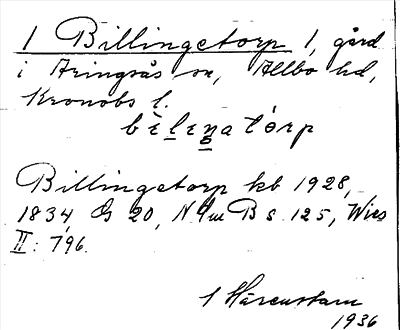 1 Billingetorp 1, gård
i Aringsås sn, Allbo hd,
Kronobs l.
bèleŋatórp
Billingetorp kb 1928,
1834, G 20, NSmB s. 125, Wies
II: 796.
1936